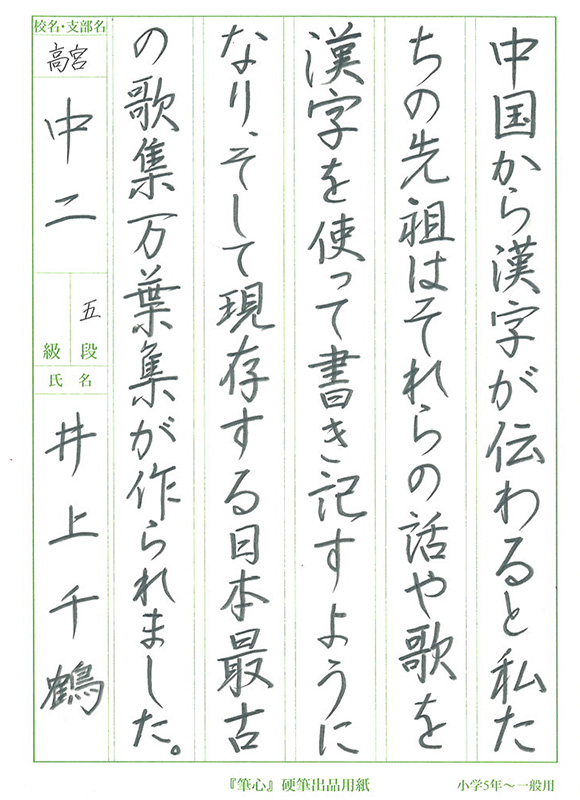 中国から漢字が伝わると私た
ちの先祖はそれらの話や歌を
漢字を使って書き記すように
なり、そして現存する日本最古
の歌集万葉集が作られました。
校名・支部名
高宮
中二
五
級 段
氏名
井上千鶴
『筆心』硬筆出品用紙
小学5年～一般用